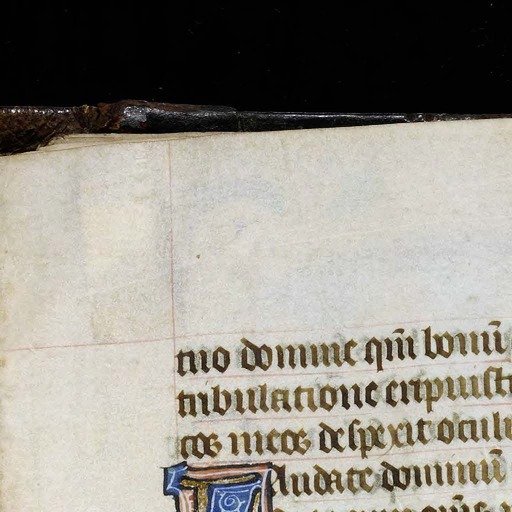 tuo domine qm̄ bonū
tribulatione eripuisti
cos meos despexit oculu
Laudate dominū